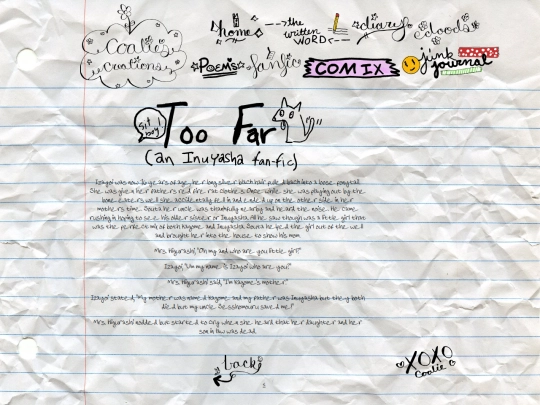 Coalie's
Creations
home
--->the
written
WORD<---
diary
doods
POEMS
fanfic
COMIX
junk
journal
sit
boy!
Too Far
(an Inuyasha fan-fic)
Izayoi was now 10 years of age, her long silver black hair pulled back into a loose ponytail.
She was given her father's red fire rat clothes. Once while she was playing out by the
bone eaters well she accidentally fell in and ended up on the other side. In her
mother's time. Souta her uncle was thankfully nearby and heard the noise. He came
rushing in hoping to see his older sister or Inuyasha. All he saw though was a little girl that
was the perfect mix of both Kagome and Inuyasha. Souta helped the girl out of the well
and brought her into the house to show his mom.
Mrs. Higurashi, "Oh my and who are you little girl?"
Izayoi, "Um my name is Izayoi who are you?"
Mrs. Higurashi said, "I'm Kagome's mother."
Izayoi stated, "My mother was named Kagome and my father was Inuyasha but they both
died but my uncle Sesshomouru saved me!"
Mrs. Higurashi nodded but started to cry when she heard that her daughter and her
son in law was dead.
back
XOXO
Coalie